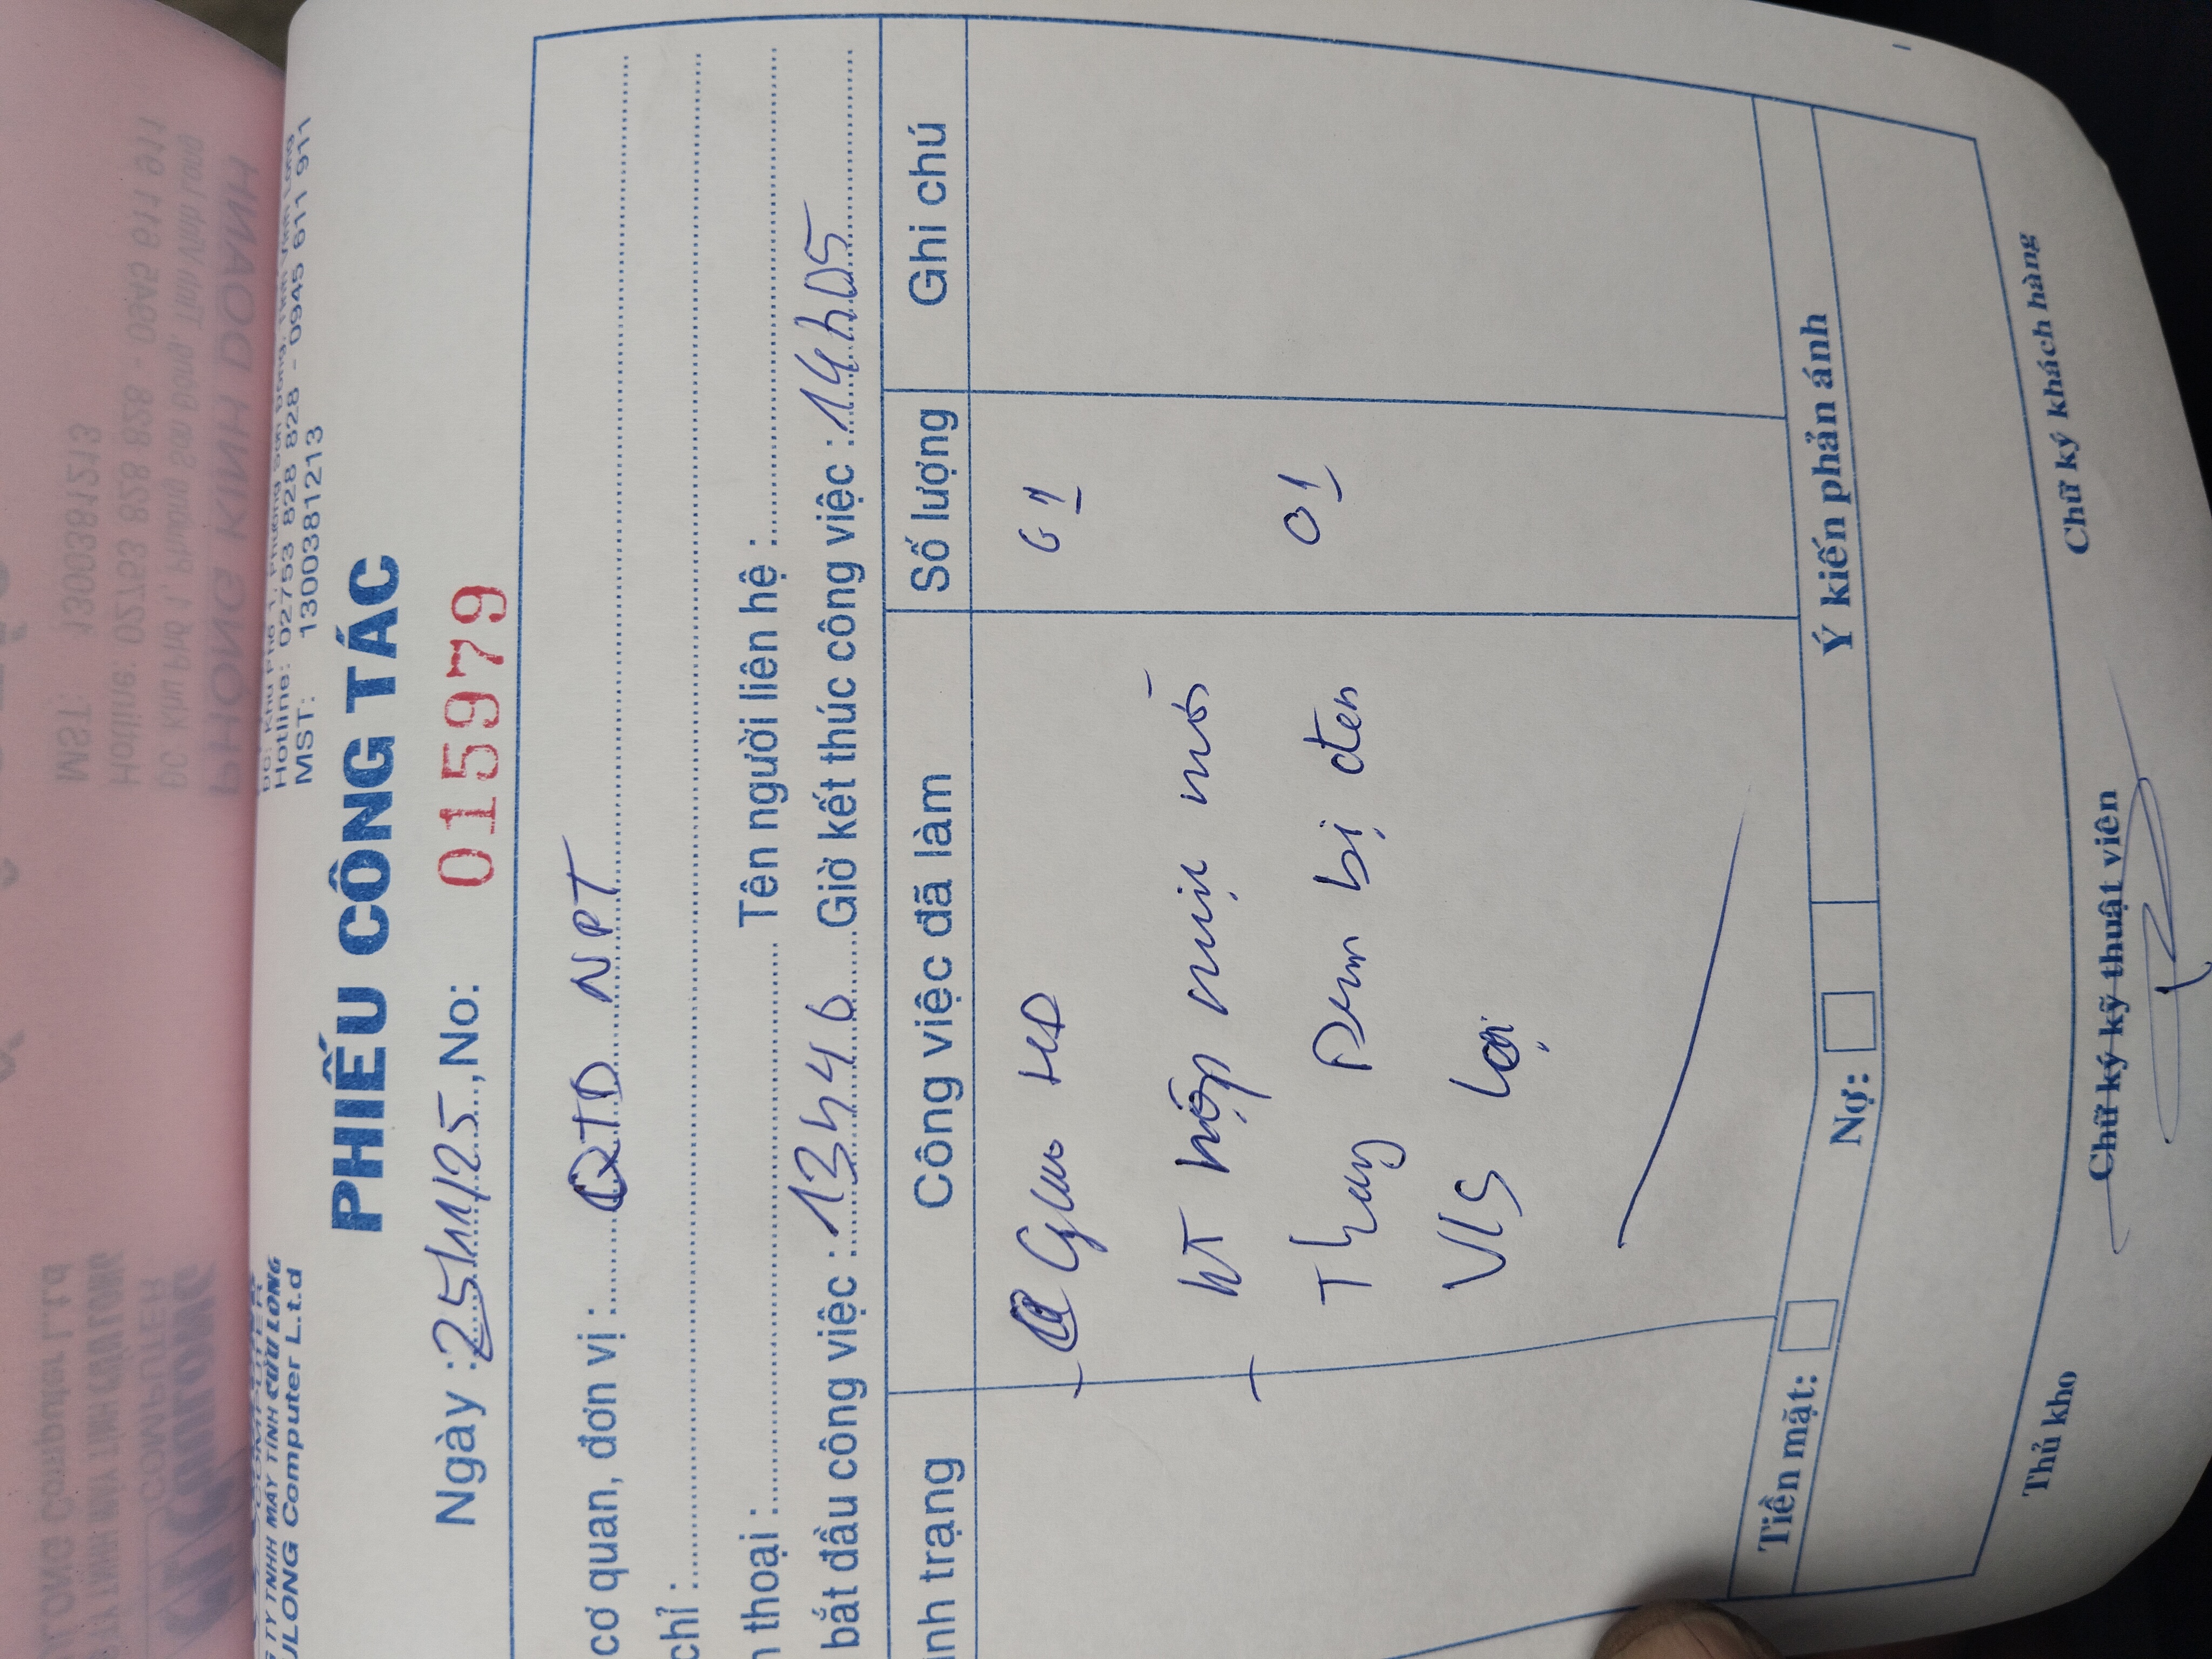 TY TNHH MÁY TÍNH CỬU LONG
ULONG Computer L.t.d
Hotline: 02753 828 828 - 0945 611 911
MST: 1300381213
PHIẾU CÔNG TÁC
Ngày : 25/11/25 , No: 015979
cơ quan, đơn vị : QTD NPT
chỉ :
thoại : Tên người liên hệ :
bắt đầu công việc : 13h46 Giờ kết thúc công việc : 14h05
ình trạng Công việc đã làm Số lượng Ghi chú
Giao HĐ 01
KT hộp mực mới
Thay Drum bị đen 01
VIS lại
Tiền mặt: Nợ: Ý kiến phản ánh
Thủ kho Chữ ký kỹ thuật viên Chữ ký khách hàng